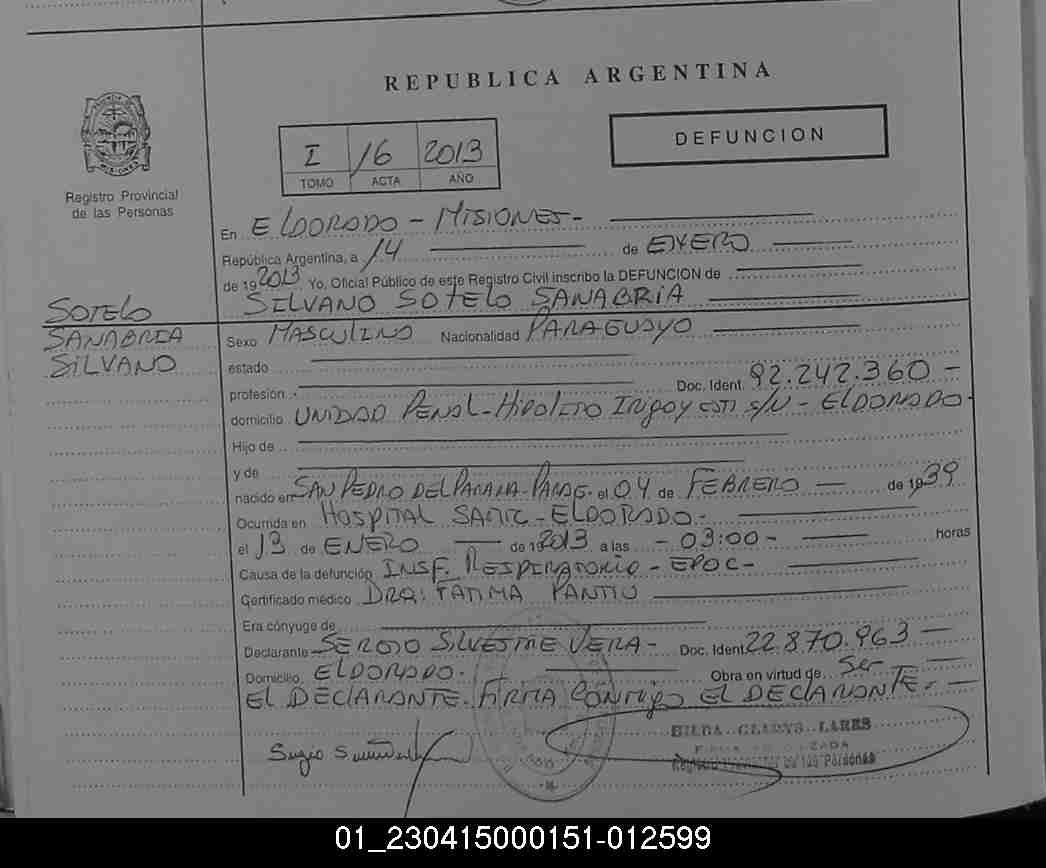 REPUBLICA ARGENTINA
DEFUNCION
I 16 2013
TOMO ACTA AÑO
Registro Provincial
de las Personas
En ELDORADO - MISIONES -
República Argentina, a 14 de ENERO
de 19 2013 Yo, Oficial Público de este Registro Civil inscribo la DEFUNCION de
SILVANO SOTELO SANABRIA
SOTELO
SANABRIA
SILVANO
Sexo MASCULINO Nacionalidad PARAGUAYO
estado
profesión Doc. Ident. 92.242.360 -
domicilio UNIDAD PENAL - HIPOLITO IRIGOYEN S/N - ELDORADO -
Hijo de
y de
nacido en SAN PEDRO DEL PARANA - PARAG. el 04 de FEBRERO de 19 39
Ocurrida en HOSPITAL SAMIC - ELDORADO -
el 13 de ENERO de 19 2013 a las - 03:00 - horas
Causa de la defunción INSF. RESPIRATORIO - EPOC -
Certificado médico DRA: FATIMA
Era cónyuge de
Declarante SERGIO SILVESTRE VERA - Doc. Ident. 22.870.963
Domicilio ELDORADO. Obra en virtud de Ser
EL DECLARANTE. FIRMA CONMIGO EL DECLARANTE. -
HILDA GLADYS LARES
Registro de las Personas
01_230415000151-012599